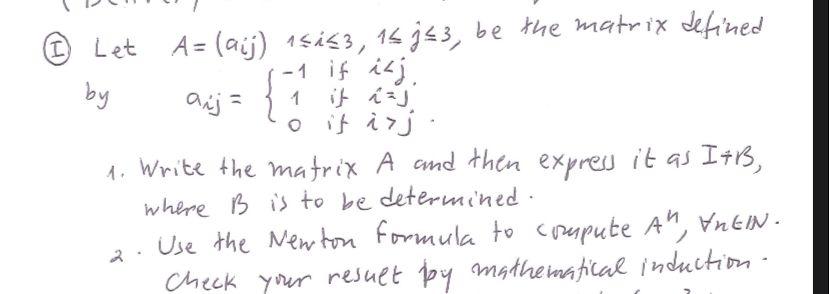 I Let A = (aij) 1≤i≤3, 1≤j≤3, be the matrix defined
by aij = { -1 if i<j.
1 if i=j
0 if i>j.
1. Write the matrix A and then express it as I+B,
where B is to be determined.
2. Use the Newton formula to compute Aⁿ, ∀n∈ℕ.
Check your result by mathematical induction.